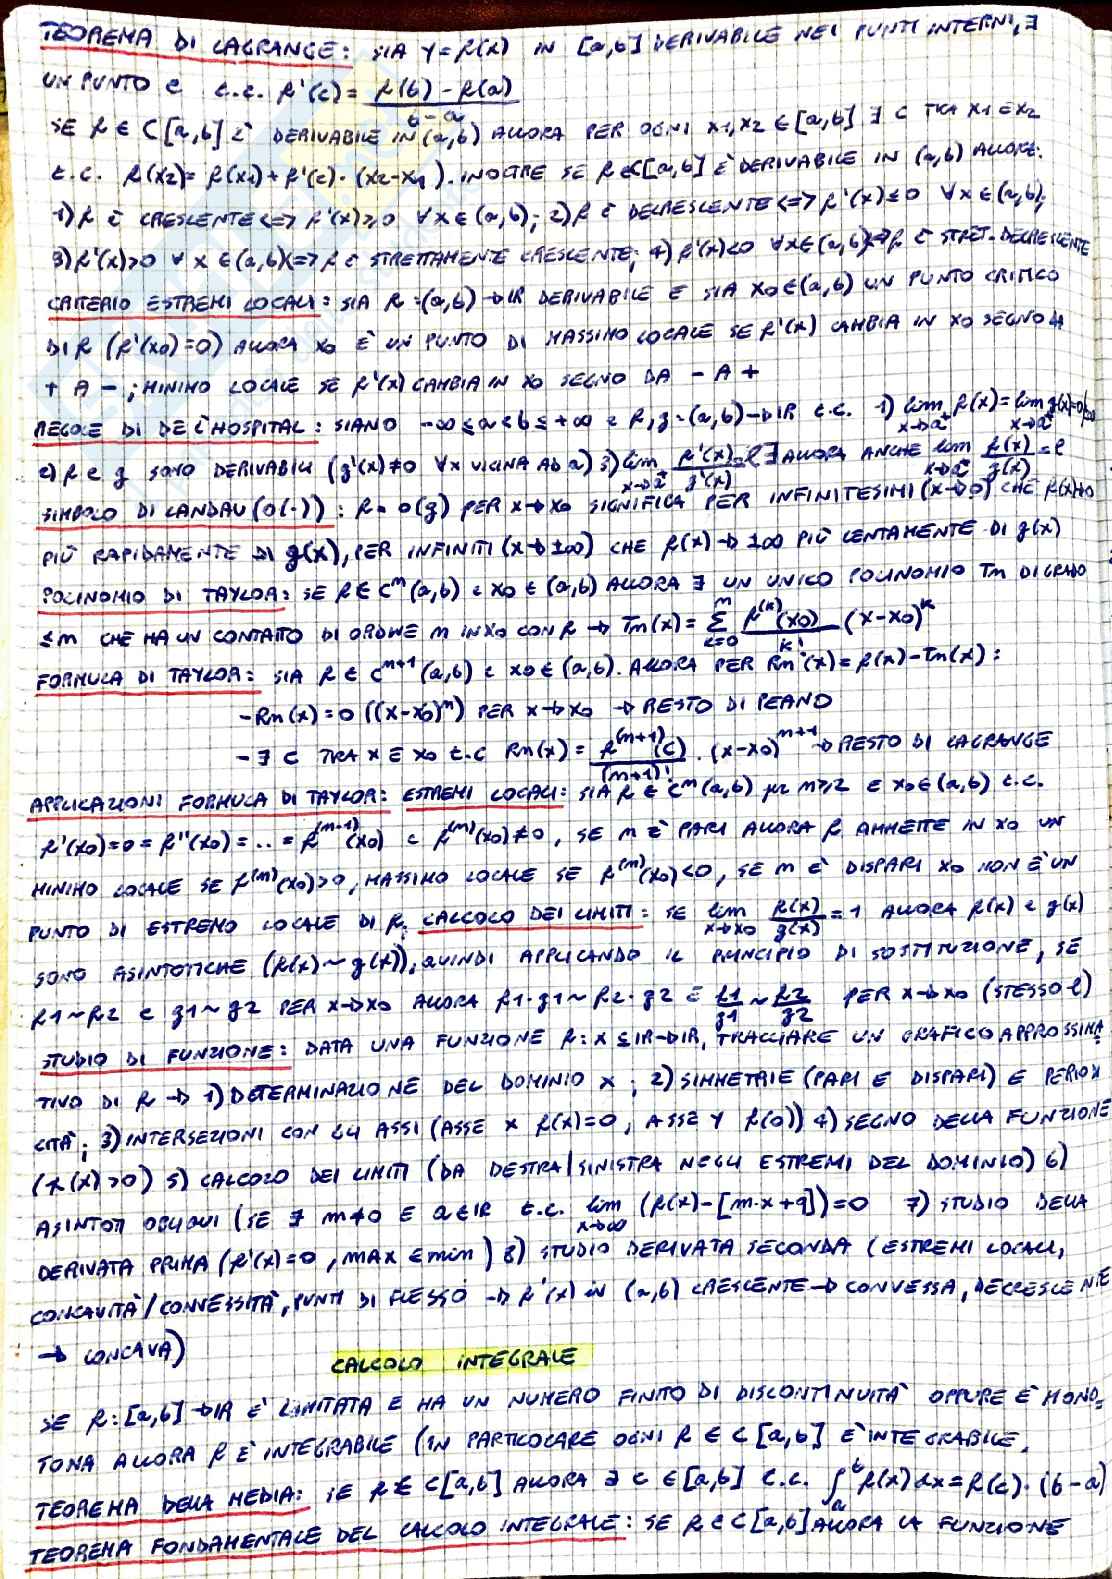 TEOREMA DI LAGRANGE: SIA Y=f(x) IN [a,b] DERIVABILE NEI PUNTI INTERNI, ∃
UN PUNTO C t.c. f'(c)= f(b)-f(a) / b-a
SE f ∈ C[a,b] E' DERIVABILE IN (a,b) ALLORA PER OGNI x1,x2 ∈ [a,b] ∃ C TRA x1 E x2
t.c. f(x2)= f(x1)+f'(c)·(x2-x1). INOLTRE SE f∈C[a,b] E' DERIVABILE IN (a,b) ALLORA:
1) f È CRESCENTE <=> f'(x)≥0 ∀x∈(a,b); 2) f È DECRESCENTE <=> f'(x)≤0 ∀x∈(a,b);
3) f'(x)>0 ∀x∈(a,b) <=> f È STRETTAMENTE CRESCENTE; 4) f'(x)<0 ∀x∈(a,b) <=> f È STRET. DECRESCENTE
CRITERIO ESTREMI LOCALI: SIA f:(a,b)→IR DERIVABILE E SIA x0∈(a,b) UN PUNTO CRITICO
DI f (f'(x0)=0) ALLORA x0 E' UN PUNTO DI MASSIMO LOCALE SE f'(x) CAMBIA IN x0 SEGNO DA
+ A -; MINIMO LOCALE SE f'(x) CAMBIA IN x0 SEGNO DA - A +
REGOLE DI DE L'HOSPITAL: SIANO -∞≤a<b≤+∞ e f,g:(a,b)→IR t.c. 1) lim x→a⁺ f(x)=lim x→a⁺ g(x)=0/±∞
2) f e g SONO DERIVABILI (g'(x)≠0 ∀x VICINA AD a) 3) lim x→a⁺ f'(x)/g'(x)=l ∃ ALLORA ANCHE lim x→a⁺ f(x)/g(x)=l
SIMBOLO DI LANDAU (o(·)): f=o(g) PER x→x0 SIGNIFICA PER INFINITESIMI (x→0) CHE f(x)→0
PIÙ RAPIDAMENTE DI g(x), PER INFINITI (x→±∞) CHE f(x)→±∞ PIÙ LENTAMENTE DI g(x)
POLINOMIO DI TAYLOR: SE f∈Cⁿ(a,b) e x0∈(a,b) ALLORA ∃ UN UNICO POLINOMIO Tn DI GRADO
≤n CHE HA UN CONTATTO DI ORDINE n IN x0 CON f → Tn(x)= Σ k=0 n f⁽ᵏ⁾(x0)/k! (x-x0)ᵏ
FORMULA DI TAYLOR: SIA f∈Cⁿ⁺¹(a,b) e x0∈(a,b). ALLORA PER Rn(x)=f(x)-Tn(x):
-Rn(x)=o((x-x0)ⁿ) PER x→x0 → RESTO DI PEANO
-∃ C TRA x E x0 t.c Rn(x)= f⁽ⁿ⁺¹⁾(c)/(n+1)! · (x-x0)ⁿ⁺¹ → RESTO DI LAGRANGE
APPLICAZIONI FORMULA DI TAYLOR: ESTREMI LOCALI: SIA f∈Cⁿ(a,b) per n≥2 E x0∈(a,b) t.c.
f'(x0)=0=f''(x0)=..=f⁽ⁿ⁻¹⁾(x0) e f⁽ⁿ⁾(x0)≠0, SE n E' PARI ALLORA f AMMETTE IN x0 UN
MINIMO LOCALE SE f⁽ⁿ⁾(x0)>0, MASSIMO LOCALE SE f⁽ⁿ⁾(x0)<0, SE n E' DISPARI x0 NON E' UN
PUNTO DI ESTREMO LOCALE DI f. CALCOLO DEI LIMITI: SE lim x→x0 f(x)/g(x)=1 ALLORA f(x) e g(x)
SONO ASINTOTICHE (f(x)~g(x)), QUINDI APPLICANDO IL PRINCIPIO DI SOSTITUZIONE, SE
f1~f2 e g1~g2 PER x→x0 ALLORA f1·g1~f2·g2 E f1/g1 ~ f2/g2 PER x→x0 (STESSO l)
STUDIO DI FUNZIONE: DATA UNA FUNZIONE f:X⊆IR→IR, TRACCIARE UN GRAFICO APPROSSIMA
TIVO DI f → 1) DETERMINAZIONE DEL DOMINIO X; 2) SIMMETRIE (PARI E DISPARI) E PERIODI
CITA'; 3) INTERSEZIONI CON GLI ASSI (ASSE x f(x)=0, ASSE Y f(0)) 4) SEGNO DELLA FUNZIONE
(f(x)>0) 5) CALCOLO DEI LIMITI (DA DESTRA/SINISTRA NEGLI ESTREMI DEL DOMINIO) 6)
ASINTOTI OBLIQUI (SE ∃ m≠0 E q∈IR t.c. lim x→∞ (f(x)-[m·x+q])=0 7) STUDIO DELLA
DERIVATA PRIMA (f'(x)=0, MAX E min) 8) STUDIO DERIVATA SECONDA (ESTREMI LOCALI,
CONCAVITÀ/CONVESSITÀ, PUNTI DI FLESSO → f'(x) in (a,b) CRESCENTE → CONVESSA, DECRESCENTE
→ CONCAVA)
CALCOLO INTEGRALE
SE f:[a,b]→IR E' LIMITATA E HA UN NUMERO FINITO DI DISCONTINUITA' OPPURE E' MONO=
TONA ALLORA f E' INTEGRABILE (IN PARTICOLARE OGNI f∈C[a,b] E' INTEGRABILE.
TEOREMA DELLA MEDIA: SE f∈C[a,b] ALLORA ∃ C∈[a,b] t.c. ∫ₐᵇ f(x)dx=f(c)·(b-a)
TEOREMA FONDAMENTALE DEL CALCOLO INTEGRALE: SE f∈C[a,b] ALLORA LA FUNZIONE